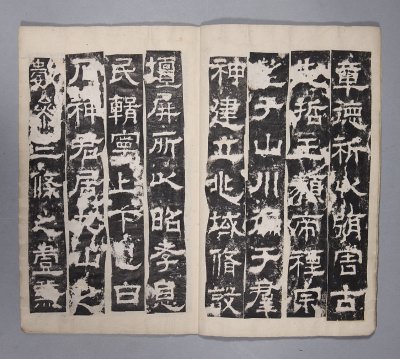 章德祈以弭害古
先哲王類帝禋宗
望于山川徧于羣
神建立兆域脩設
壇屏所以昭孝息
民輯寧上下也白
石神君居九山之
數參三條之壹兼